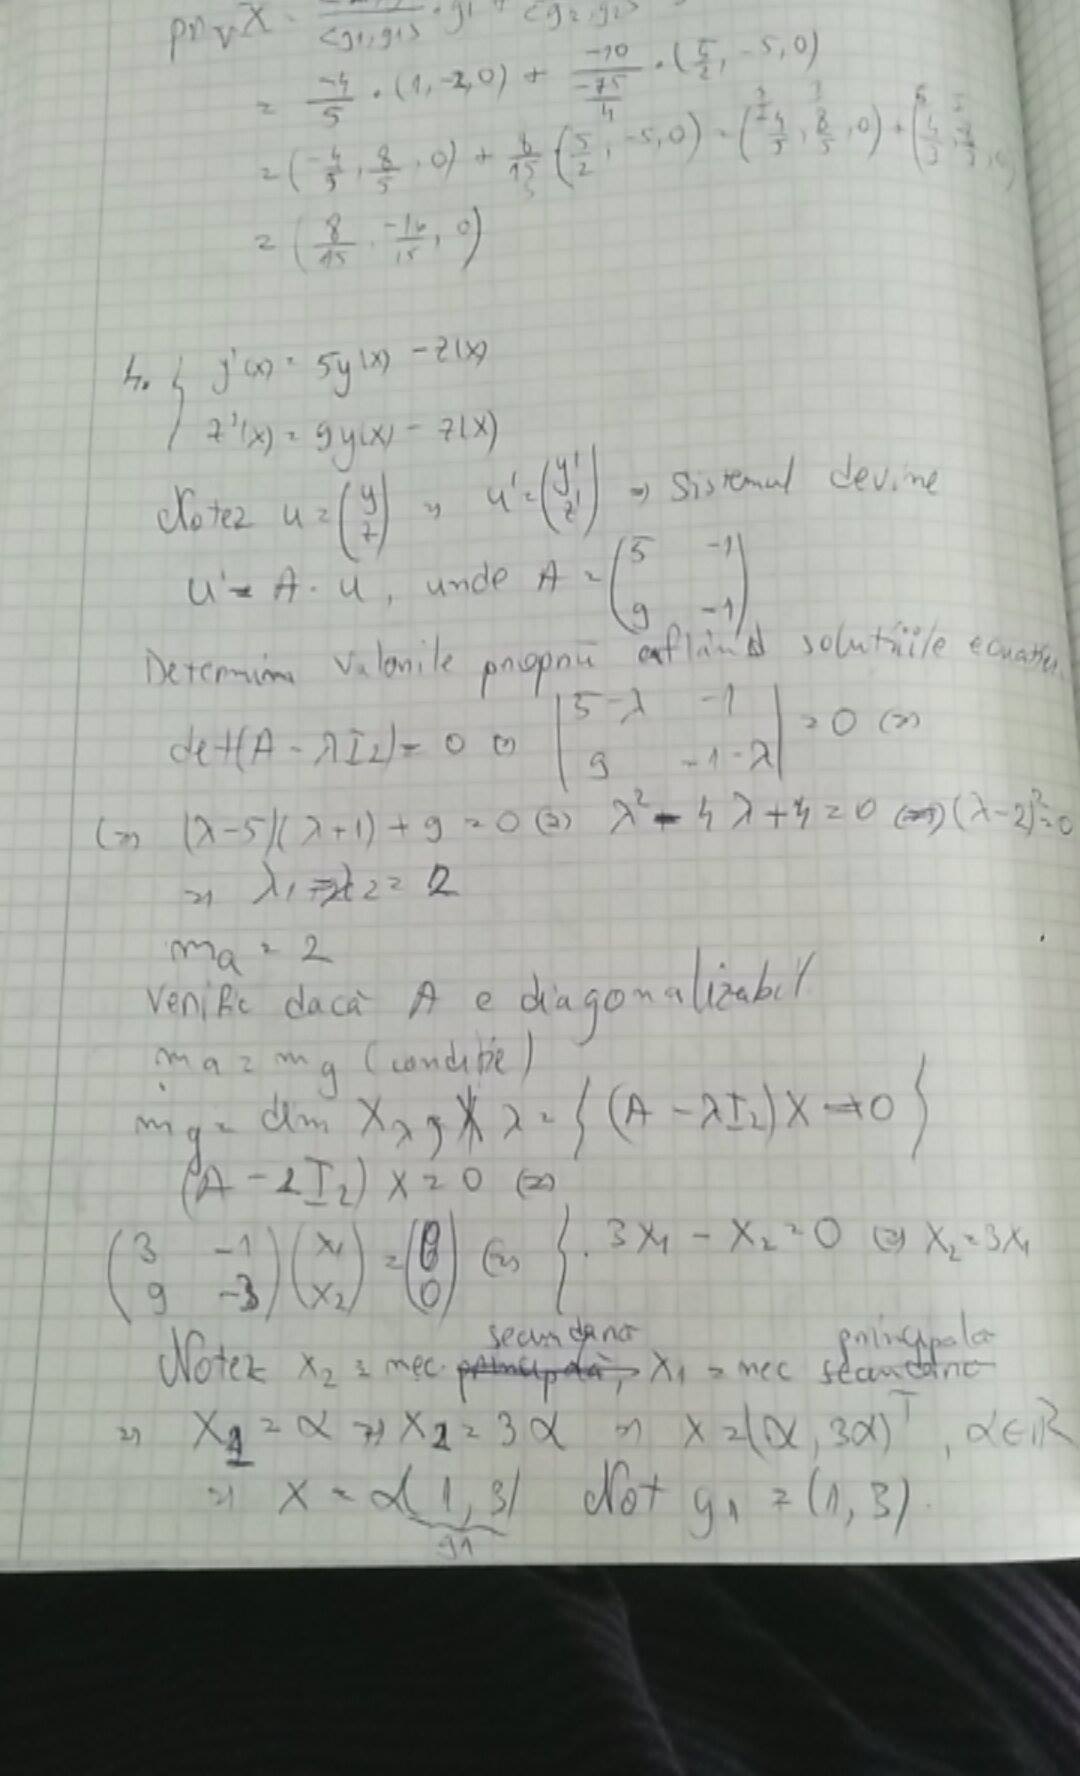 = -4/5 · (1, -2, 0) + -10/(-75/4) · (5/2, -5, 0)
= (-4/5, 8/5, 0) + (5/2, -5, 0) =
= (8/15, -16/15, 0)
4. { y'(x) = 5y(x) - z(x)
z'(x) = 9y(x) - z(x)
Notez u = (y z) => u' = (y' z') => Sistemul devine
u' = A · u, unde A = (5 -1
9 -1)
Determin valorile proprii aflând solutiile ecuatiei
det(A - λI₂) = 0 <=> |5-λ -1
9 -1-λ| = 0 <=>
<=> (λ-5)(λ+1) + 9 = 0 <=> λ² - 4λ + 4 = 0 <=> (λ-2)² = 0
=> λ₁ = λ₂ = 2
ma = 2
Verific dacă A e diagonalizabil
ma = mg (conditie)
mg = dim Xλ, Xλ = { (A - λI₂)X = 0 }
(A - 2I₂) X = 0 <=>
(3 -1
9 -3) (x₁ x₂) = (0 0) <=> { 3x₁ - x₂ = 0 <=> x₂ = 3x₁
secundara principala
Notez x₂ = nec principală, x₁ = nec secundara
=> x₁ = α => x₂ = 3α => X = (α, 3α)ᵀ, α∈ℝ
=> X = α(1, 3) Not g₁ = (1, 3).
g1